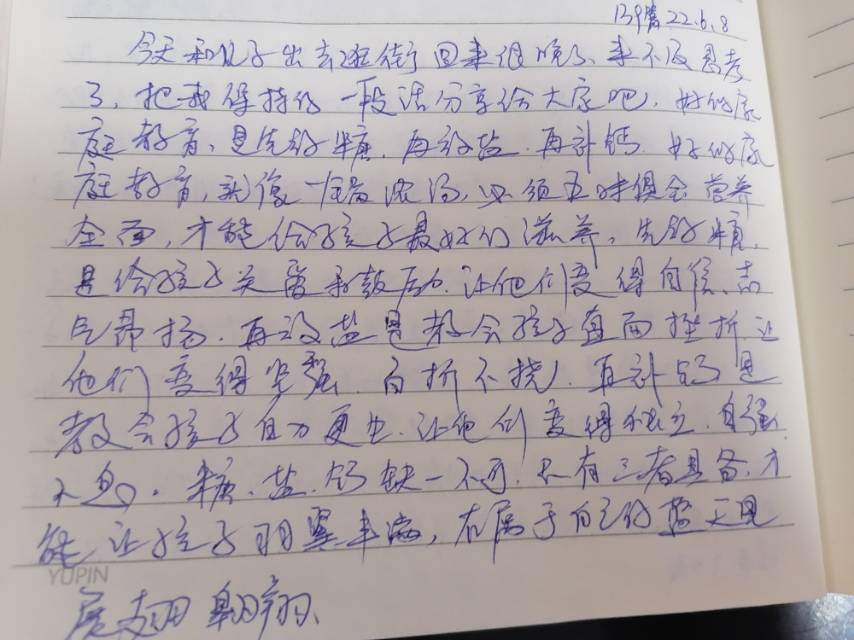 22.6.8
今天和儿子出去逛街回来很晚了、来不及思考
了，把我保持的一段话分享给大家吧，好的家
庭教育，是先给糖，再设盐.再补钙.好的家
庭教育，就像一锅浓汤，必须五味俱全营养
全面，才能给孩子最好的滋养。先给糖，
是给孩子关爱和鼓励.让他们变得自信、志
气昂扬.再设盐是教会孩子直面挫折.让
他们变得坚强.百折不挠.再补钙是
教会孩子自力更生.让他们变得独立.自强
不息。糖、盐.钙缺一不可.只有三者具备.才
能让孩子羽翼丰满，在属于自己的蓝天里
展翅翱翔、
YUPIN